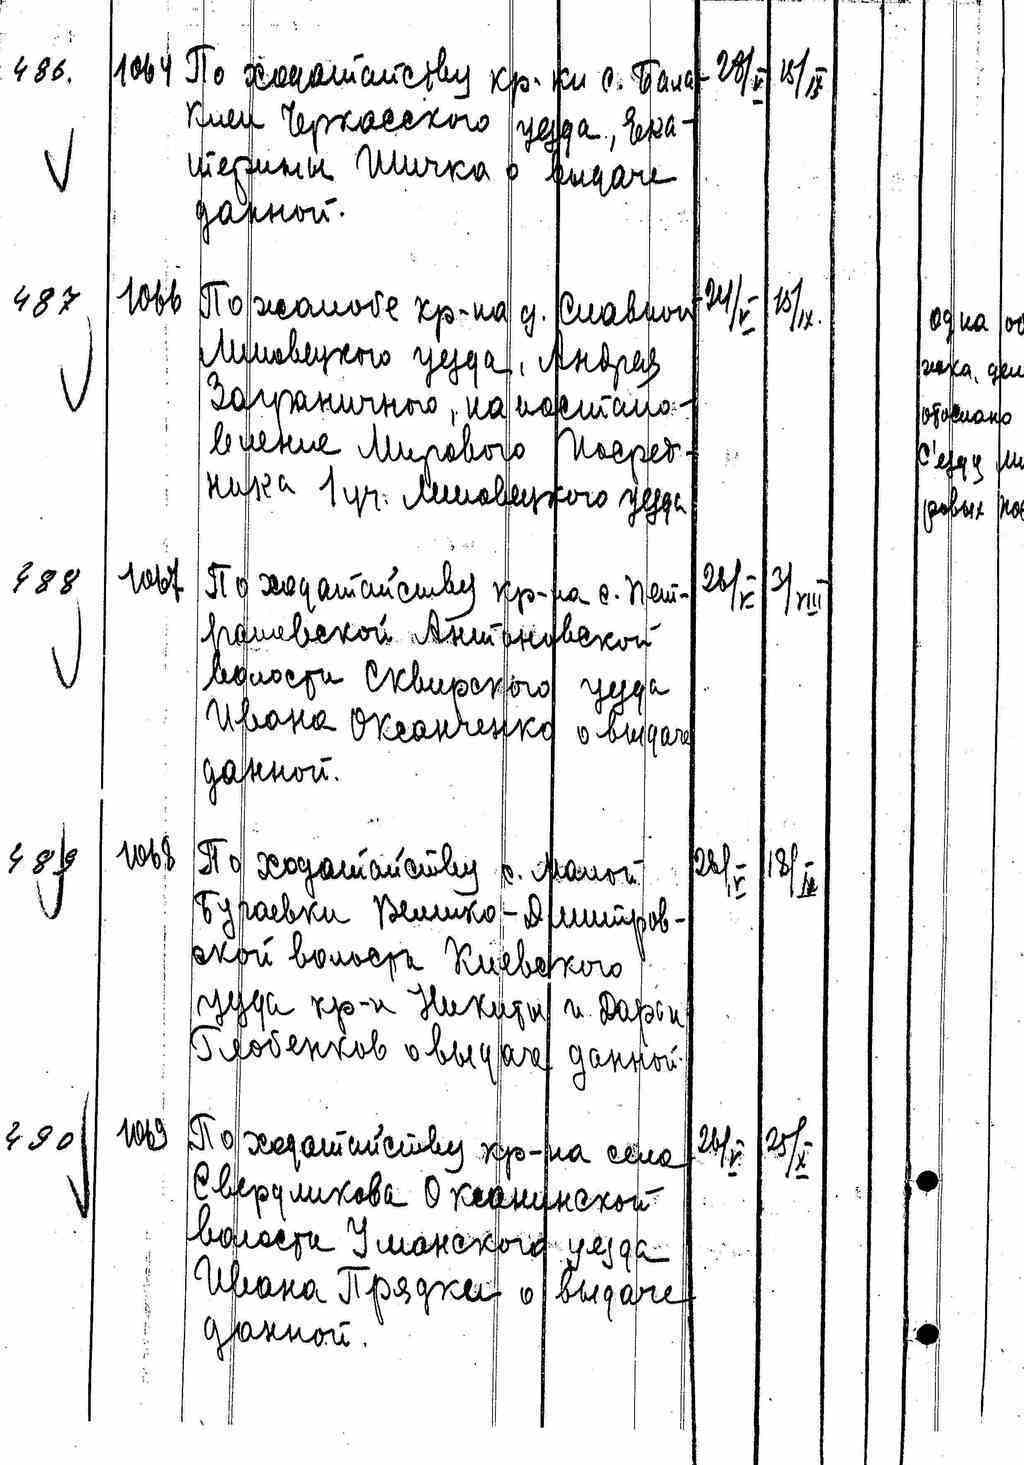 486. 1064 По ходатайству кр-ки с. Бала- 28/V 15/IX
клеи Черкасского уезда, Ека-
терины Шичка о выдаче
данной.
487 1066 По жалобе кр-на д. Славной 24/V 15/IX.
Липовецкого уезда, Андрея
Заграничного, на постано-
вление Мирового Посред-
ника 1 уч. Липовецкого уезда
одна об
отослано
С'езду Ми
ровых Пос
488 1067 По ходатайству кр-на с. Пет- 26/V 3/VIII
рашевской Антоновской
волости Сквирского уезда
Ивана Оксанченко о выдаче
данной.
489 1068 По ходатайству с. Малой 26/V 18/IX
Бугаевки Велико-Дмитров-
ской волости Киевского
уезда кр-н Никиты и Дарьи
Глобенков о выдаче данной.
490 1069 По ходатайству кр-на села 26/V 25/X
Свердликова Оксанинской
волости Уманского уезда
Ивана Прядки о выдаче
данной.